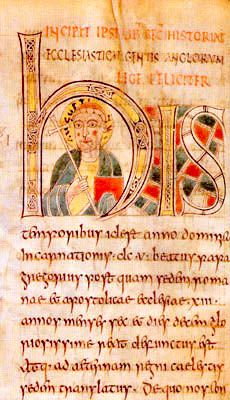 INCIPIT IPSIUS SEC HISTORIAE
ECCLESIASTICAE GENTIS ANGLORUM
LEGE FELICITER
hIS
temporibus id est anno dominicae
incarnationis dc v beatus papa
gregorius postquam sedem roma
nae & apostolicae ecclesiae xiii
annos menses sex & dies decem glo
riosissime rexit defunctus est
atq. ad aeternam regni caelestis
sedem translatus. De quo nos con